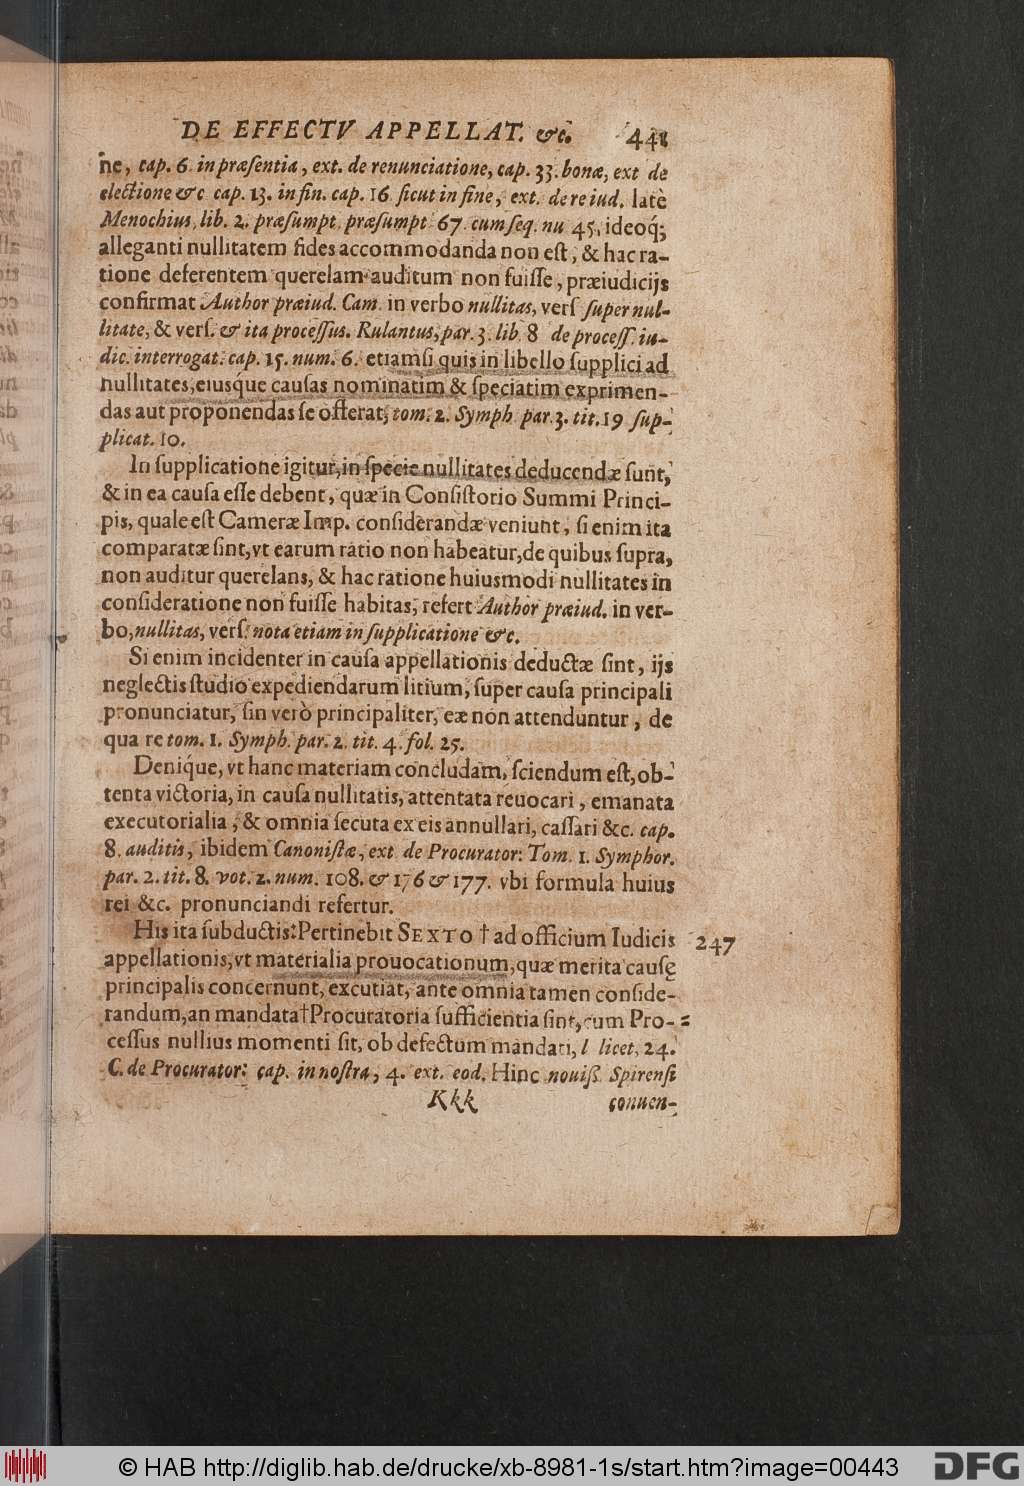 DE EFFECTV APPELLAT. &c. 441
ne, cap. 6. in præsentia, ext. de renunciatione, cap. 33. bonæ, ext de
electione &c cap. 13. in fin. cap. 16 sicut in fine, ext. de re iud. latè
Menochius, lib. 2. præsumpt. præsumpt 67. cum seq. nu 45., ideoq́;
alleganti nullitatem fides accommodanda non est, & hac ra-
tione deferentem querelam auditum non fuisse, præiudicijs
confirmat Author præiud. Cam. in verbo nullitas, vers super nul-
litate, & vers. & ita processus. Rulantus, par. 3. lib. 8 de process. iu-
dic. interrogat. cap. 15. num. 6. etiamsi quis in libello supplici ad
nullitates, eiusque causas nominatim & speciatim exprimen-
das aut proponendas se offerat, tom. 2. Symph par. 3. tit. 19 sup-
plicat. 10.
In supplicatione igitur, in specie nullitates deducendæ sunt,
& in ea causa esse debent, quæ in Consistorio Summi Princi-
pis, quale est Cameræ Imp. considerandæ veniunt, si enim ita
comparatæ sint, vt earum ratio non habeatur, de quibus supra,
non auditur querelans, & hac ratione huiusmodi nullitates in
consideratione non fuisse habitas, refert Author præiud. in ver-
bo, nullitas, vers. nota etiam in supplicatione &c.
Si enim incidenter in causa appellationis deductæ sint, ijs
neglectis studio expediendarum litium, super causa principali
pronunciatur, sin verò principaliter, eæ non attenduntur, de
qua re tom. 1. Symph. par. 2. tit. 4. fol. 25.
Denique, vt hanc materiam concludam, sciendum est, ob-
tenta victoria, in causa nullitatis, attentata reuocari, emanata
executorialia, & omnia secuta ex eis annullari, cassari &c. cap.
8. auditis, ibidem Canonistæ, ext. de Procurator: Tom. 1. Symphor.
par. 2. tit. 8. vot. 2. num. 108. & 176 & 177. vbi formula huius
rei &c. pronunciandi refertur.
His ita subductis: Pertinebit SEXTO † ad officium Iudicis 247
appellationis, vt materialia prouocationum, quæ merita causę
principalis concernunt, excutiat, ante omnia tamen conside-
randum, an mandata † Procuratoria sufficientia sint, cum Pro-
cessus nullius momenti sit, ob defectum mandati, l licet, 24.
C. de Procurator: cap. in nostra, 4. ext. eod. Hinc nouiß. Spirensi
Kkk conuen-
© HAB http://diglib.hab.de/drucke/xb-8981-1s/start.htm?image=00443 DFG